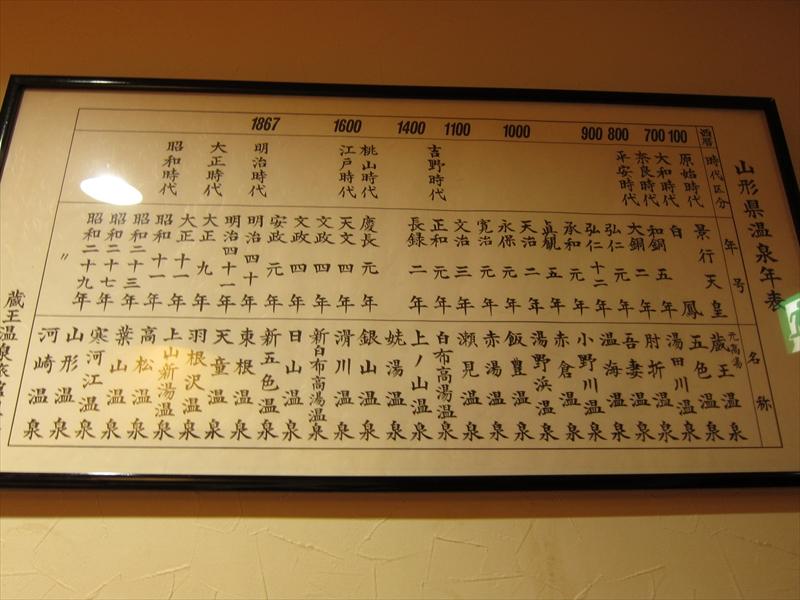 山形県温泉年表
西暦 100 700 800 900 1000 1100 1400 1600 1867
時代区分
原始時代
大和時代
奈良時代
平安時代
吉野時代
桃山時代
江戸時代
明治時代
大正時代
昭和時代
年号
景行天皇
白鳳
和銅五年
大銅二年
弘仁元年
弘仁十二年
承和元年
貞観五年
天治二年
永保元年
寛治元年
文治三年
正和元年
長録二年
慶長元年
天文四年
文政四年
文政四年
安政元年
明治四十年
明治四十一年
大正九年
大正十一年
昭和十一年
昭和二十三年
昭和二十七年
昭和二十九年
〃
名称
元高湯
蔵王温泉
五色温泉
湯田川温泉
肘折温泉
吾妻温泉
温海温泉
小野川温泉
赤倉温泉
湯野浜温泉
飯豊温泉
赤湯温泉
瀬見温泉
白布高湯温泉
上ノ山温泉
姥湯温泉
銀山温泉
滑川温泉
新白布高湯温泉
日山温泉
新五色温泉
東根温泉
天童温泉
羽根沢温泉
上山新湯温泉
高松温泉
葉山温泉
寒河江温泉
山形温泉
河崎温泉
蔵王温泉旅館